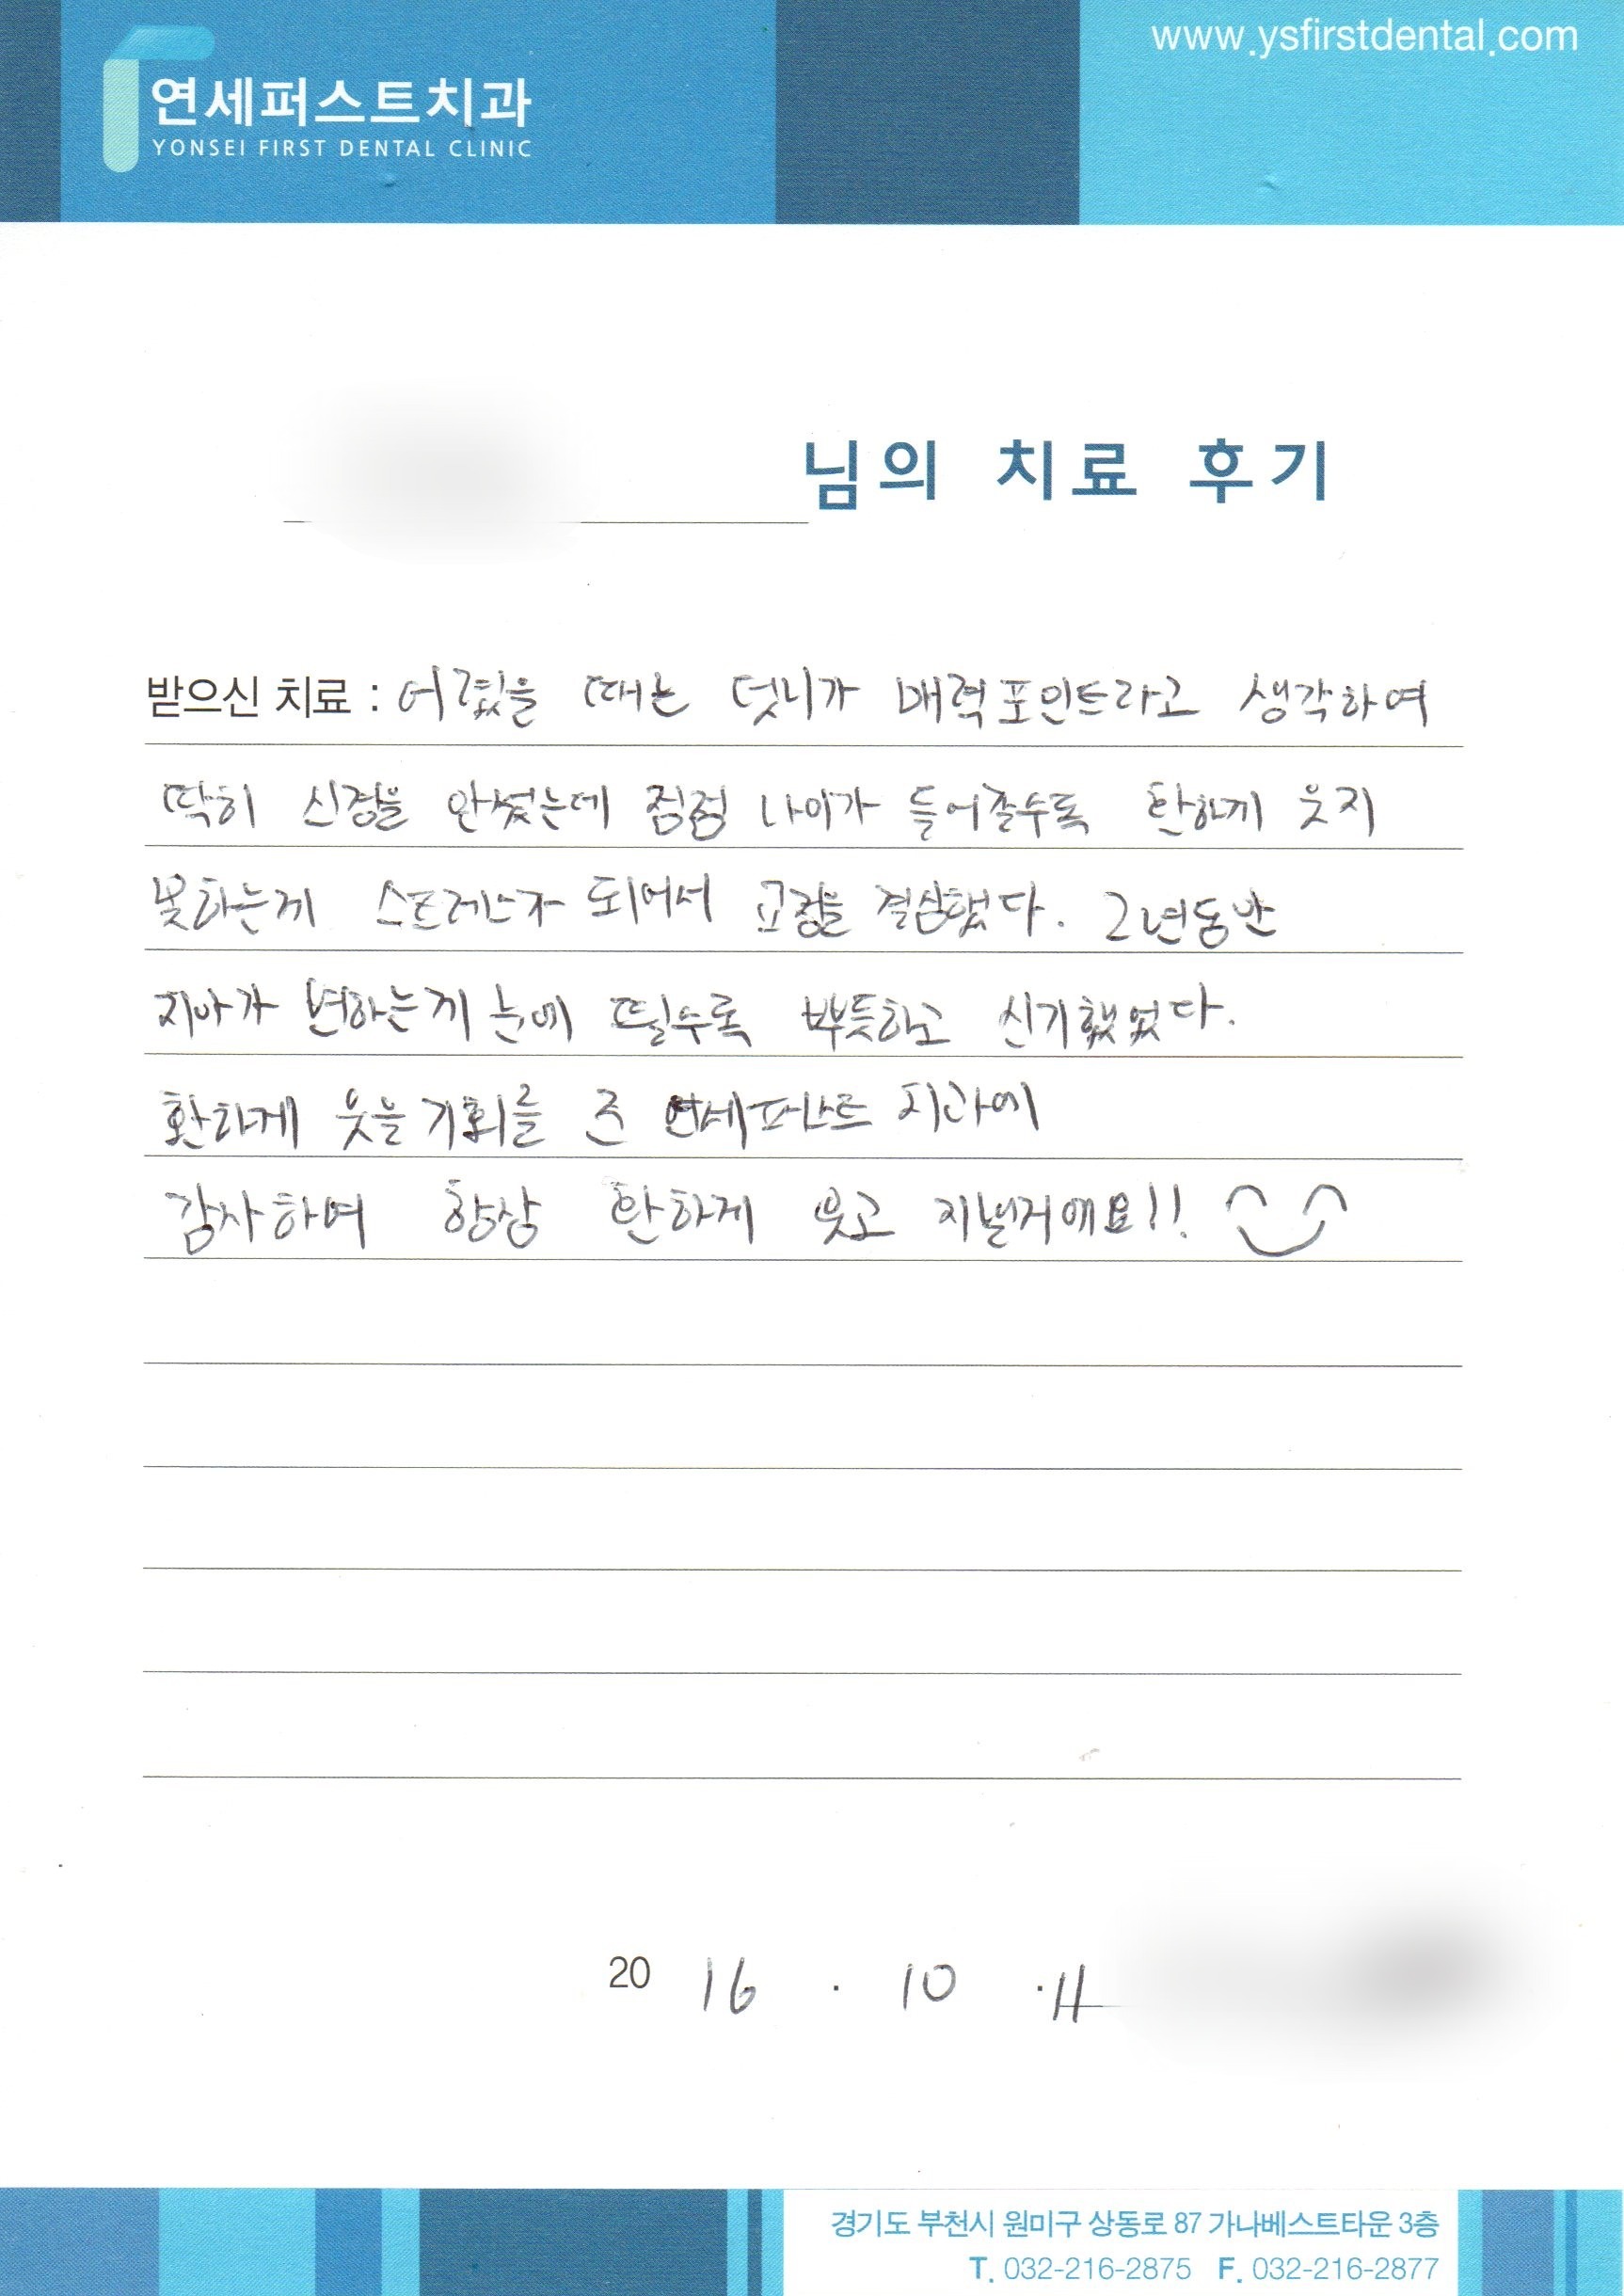 www.ysfirstdental.com
연세퍼스트치과
YONSEI FIRST DENTAL CLINIC
님의 치료 후기
받으신 치료 : 어렸을 때는 덧니가 매력포인트라고 생각하여
딱히 신경을 안썼는데 점점 나이가 들어갈수록 환하게 웃지
못하는게 스트레스가 되어서 교정을 결심했다. 2년동안
치아가 변하는게 눈에 띌수록 뿌듯하고 신기했었다.
환하게 웃을 기회를 준 연세퍼스트 치과에
감사하며 항상 환하게 웃고 지낼거에요!!
20 16 . 10 . 11
경기도 부천시 원미구 상동로 87 가나베스트타운 3층
T. 032-216-2875 F. 032-216-2877